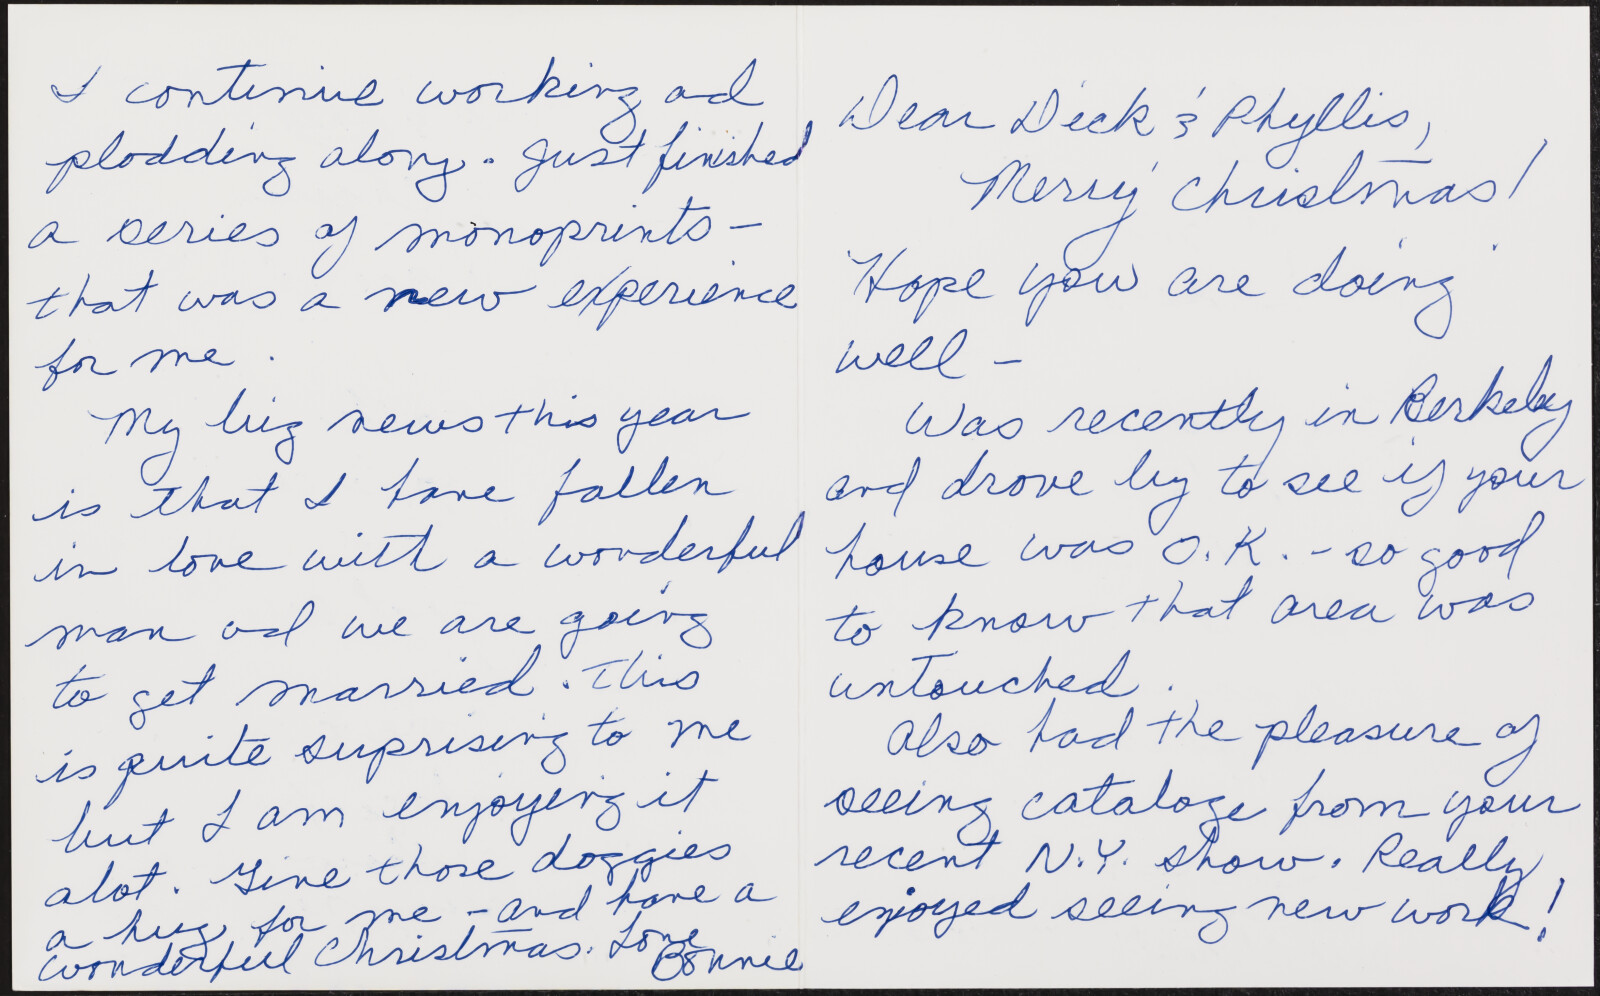 Dear Dick & Phyllis,
Merry Christmas!
Hope you are doing
well –
Was recently in Berkeley
and drove by to see if your
house was O.K. – so good
to know that area was
untouched.
Also had the pleasure of
seeing cataloge from your
recent N.Y. show. Really
enjoyed seeing new work!
I continue working ad
plodding along. Just finished
a series of monoprints –
that was a new experience
for me.
My big news this year
is that I have fallen
in love with a wonderful
man ad we are going
to get married. This
is quite suprising to me
but I am enjoying it
alot. Give those doggies
a hug for me – and have a
wonderful Christmas. Love
Bonnie